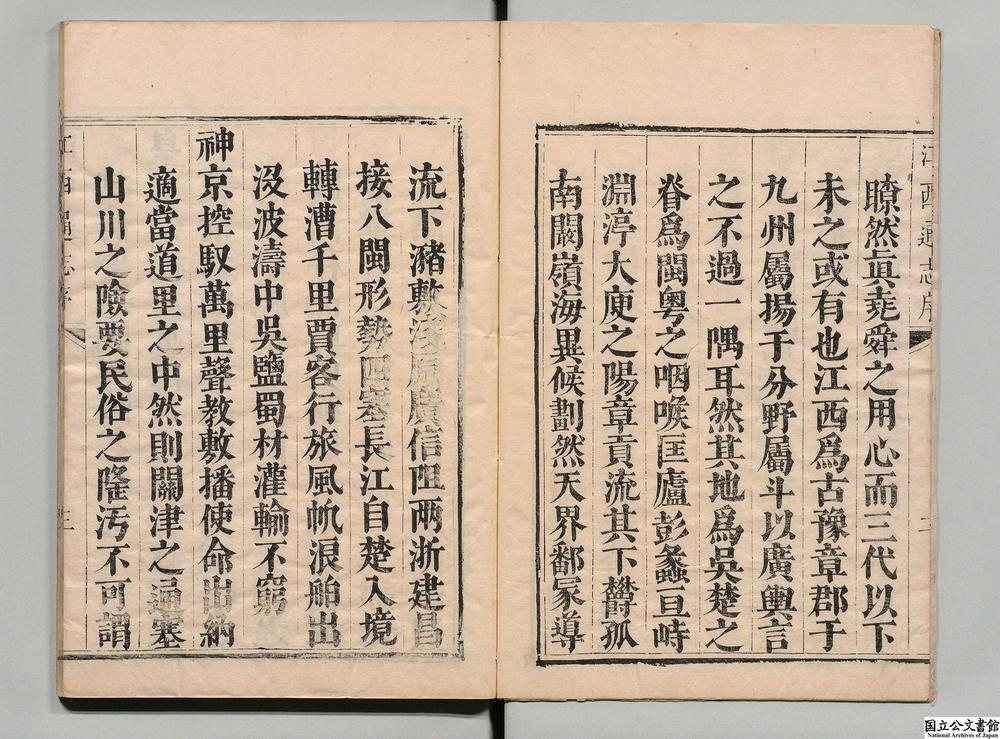 江西通志序
瞭然眞堯舜之用心而三代以下
未之或有也江西爲古豫章郡于
九州屬揚于分野屬斗以廣輿言
之不過一隅耳然其地爲吳楚之
脊爲閩粤之咽喉匡廬彭蠡亘峙
淵渟大庾之陽章貢流其下欝孤
南闢嶺海異候劃然天界鄱冢導
流下瀦敷淺原廣信阻两浙建昌
接八閩形勢四塞長江自楚入境
轉漕千里賈客行旅風帆浪舶出
没波濤中吳鹽蜀材灌輸不窮
神京控馭萬里聲教敷播使命出納
適當道里之中然則關津之通塞
山川之險要民俗之隆汚不可謂
江西通志序
三
国立公文書館
National Archives of Japan